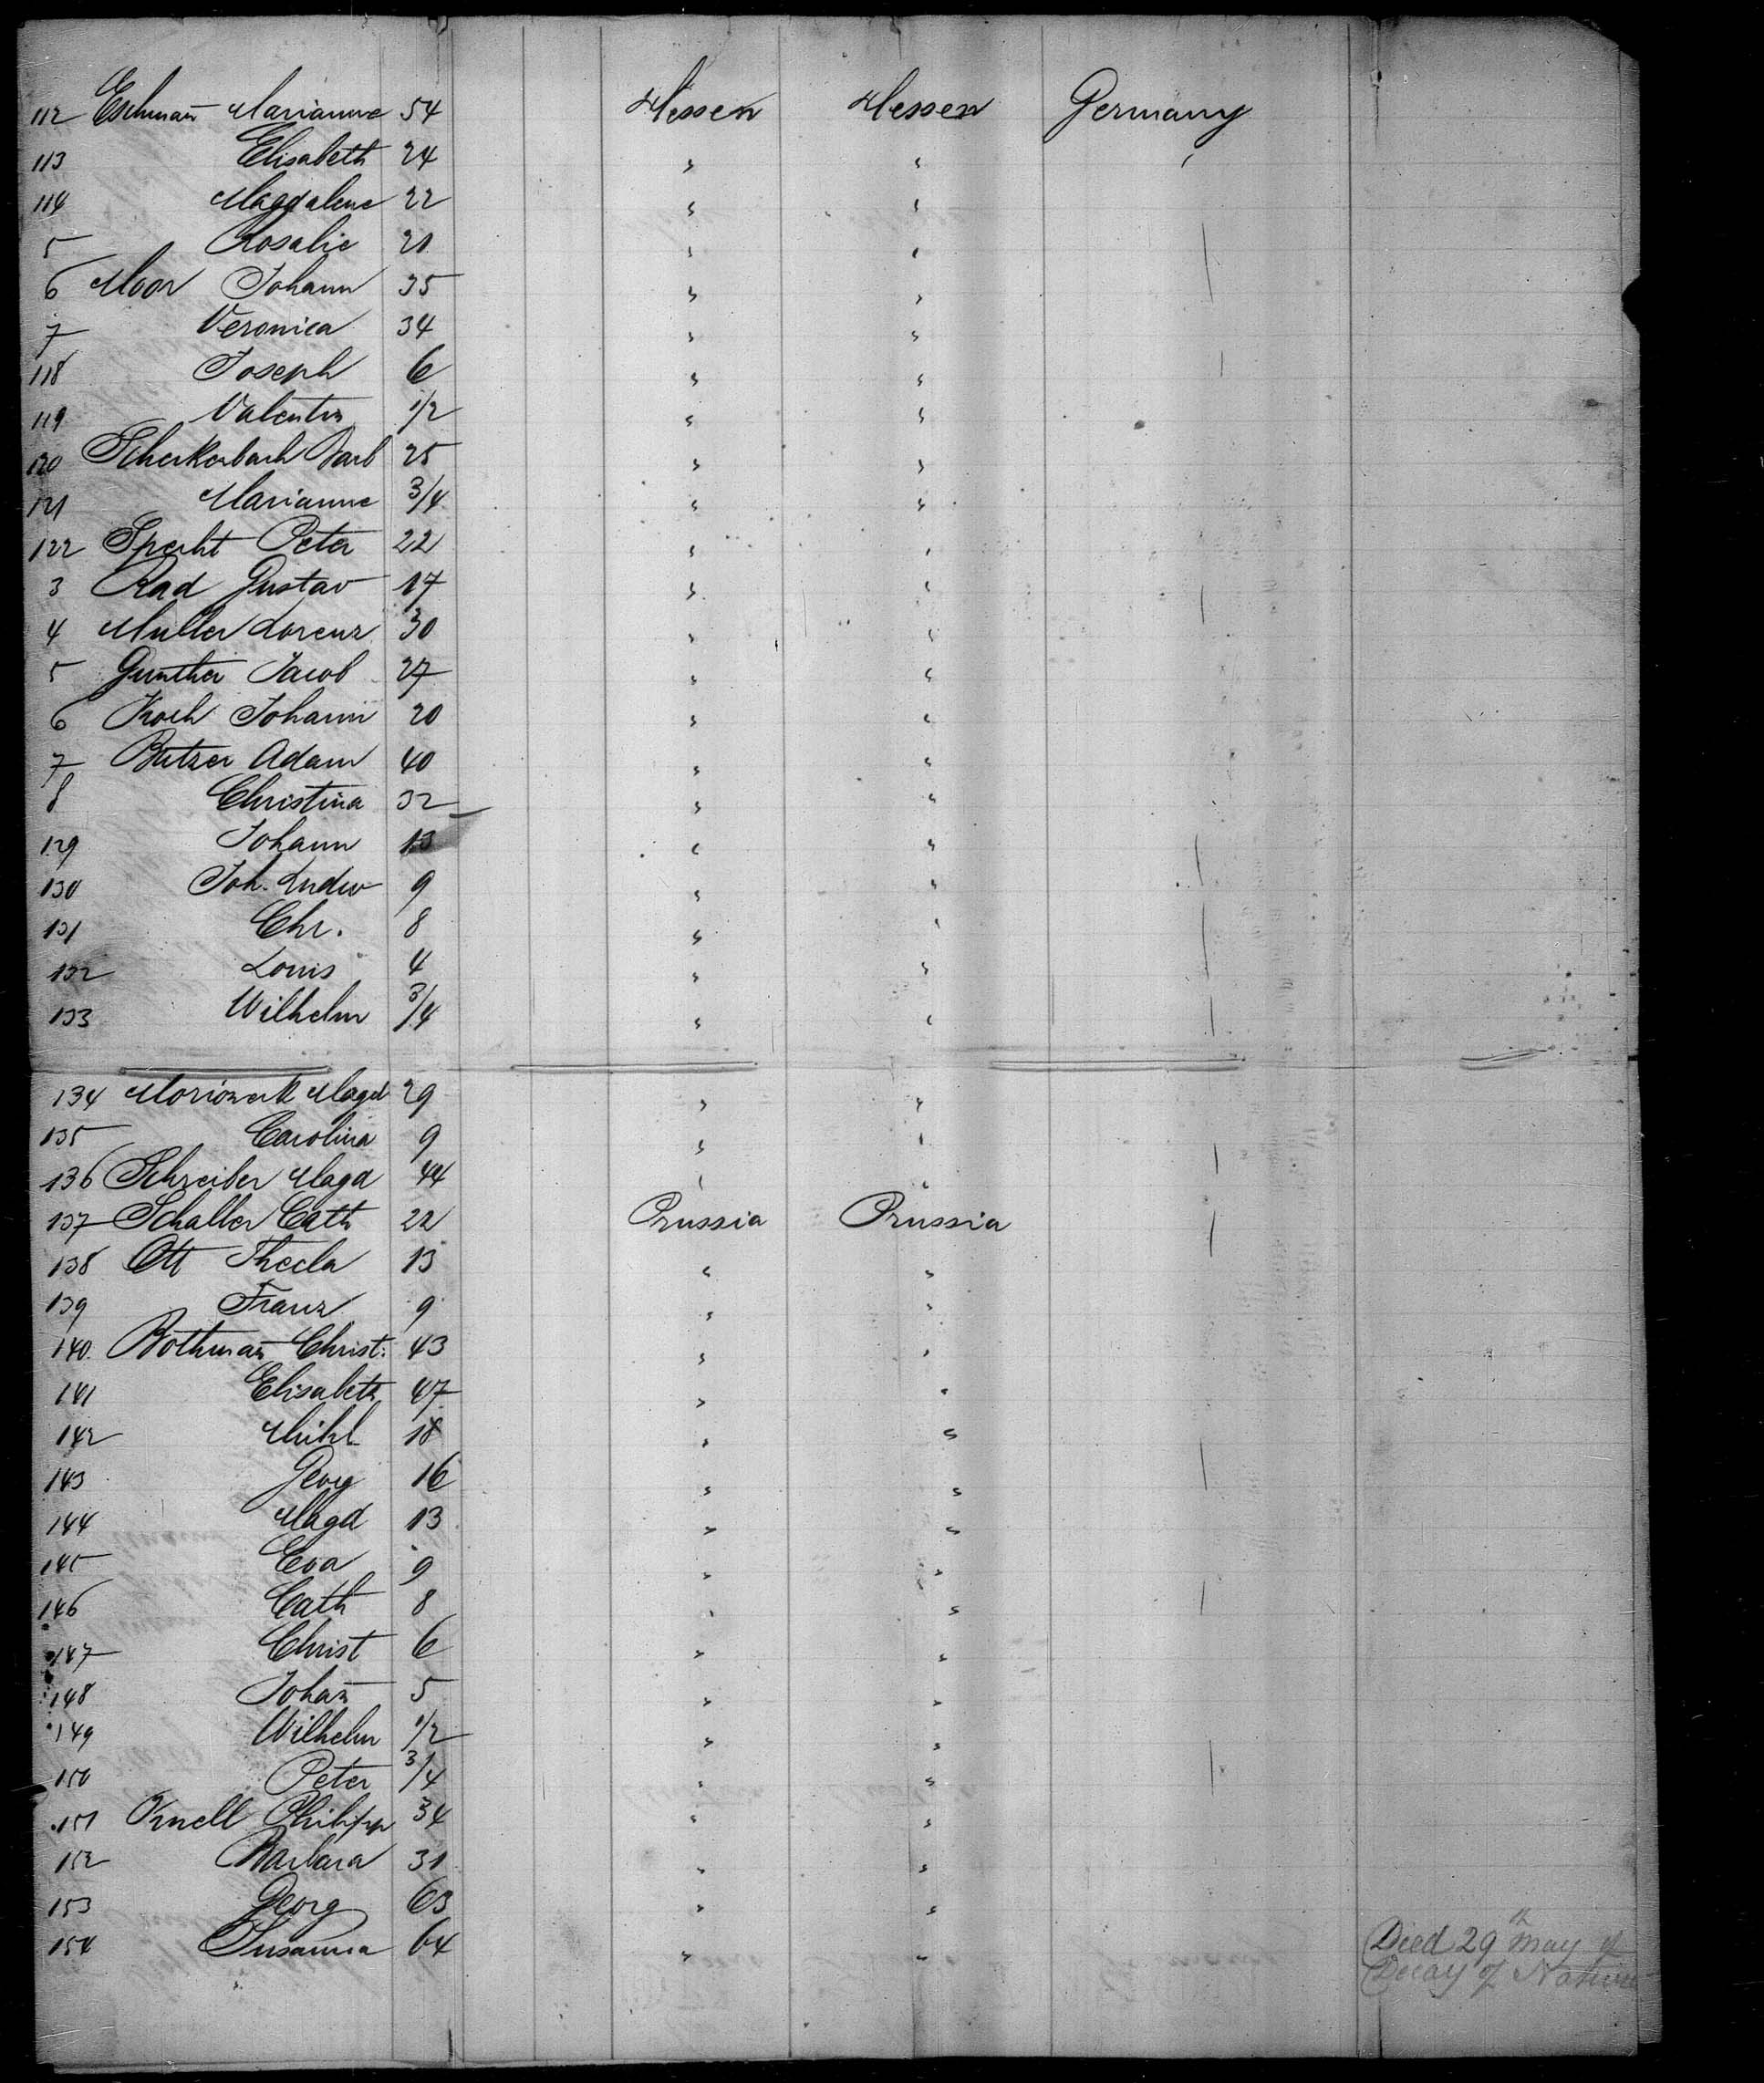 112 Eschman̄ Marianne 54 Hessen Hessen Germany
113 Elisabeth 24 " " "
114 Magdalene 22 " "
5 Rosalie 21 " "
6 Moor Johann 35 " "
7 Veronica 34 " "
118 Joseph 6 " "
119 Valentin 1/2 " "
120 Barb 25 " "
121 Marianne 3/4 " "
122 Specht Peter 22 " "
3 Rad Gustav 17 " "
4 Muller Lorenz 30 " "
5 Gunther Jacob 27 " "
6 Koch Johann 20 " "
7 Butzer Adam 40 " "
8 Christina 32 " "
129 Johann 13 " "
130 Joh. Ludw 9 " "
131 Chr. 8 " "
132 Louis 4 " "
133 Wilhelm 3/4 " "
134 Magd 29 " "
135 Carolina 9 " "
136 Schreiber Magd 44 " "
137 Schaller Cath 22 Prussia Prussia
138 Ott Thecla 13 " "
139 Franz 9 " "
140. Bothman̄ Christ: 43 " "
141 Elisabeth 47 " "
142 Michl 18 " "
143 Georg 16 " "
144 Magd 13 " "
145 Eva 9 " "
146 Cath 8 " "
147 Christ 6 " "
148 Johan̄ 5 " "
149 Wilhelm 1/2 " "
150 Peter 3/4 " "
151 Knell Philipp 34 " "
152 Barbara 31 " "
153 Georg 63 " "
154 Susanna 64 " " Died 29th May of
Decay of Nature